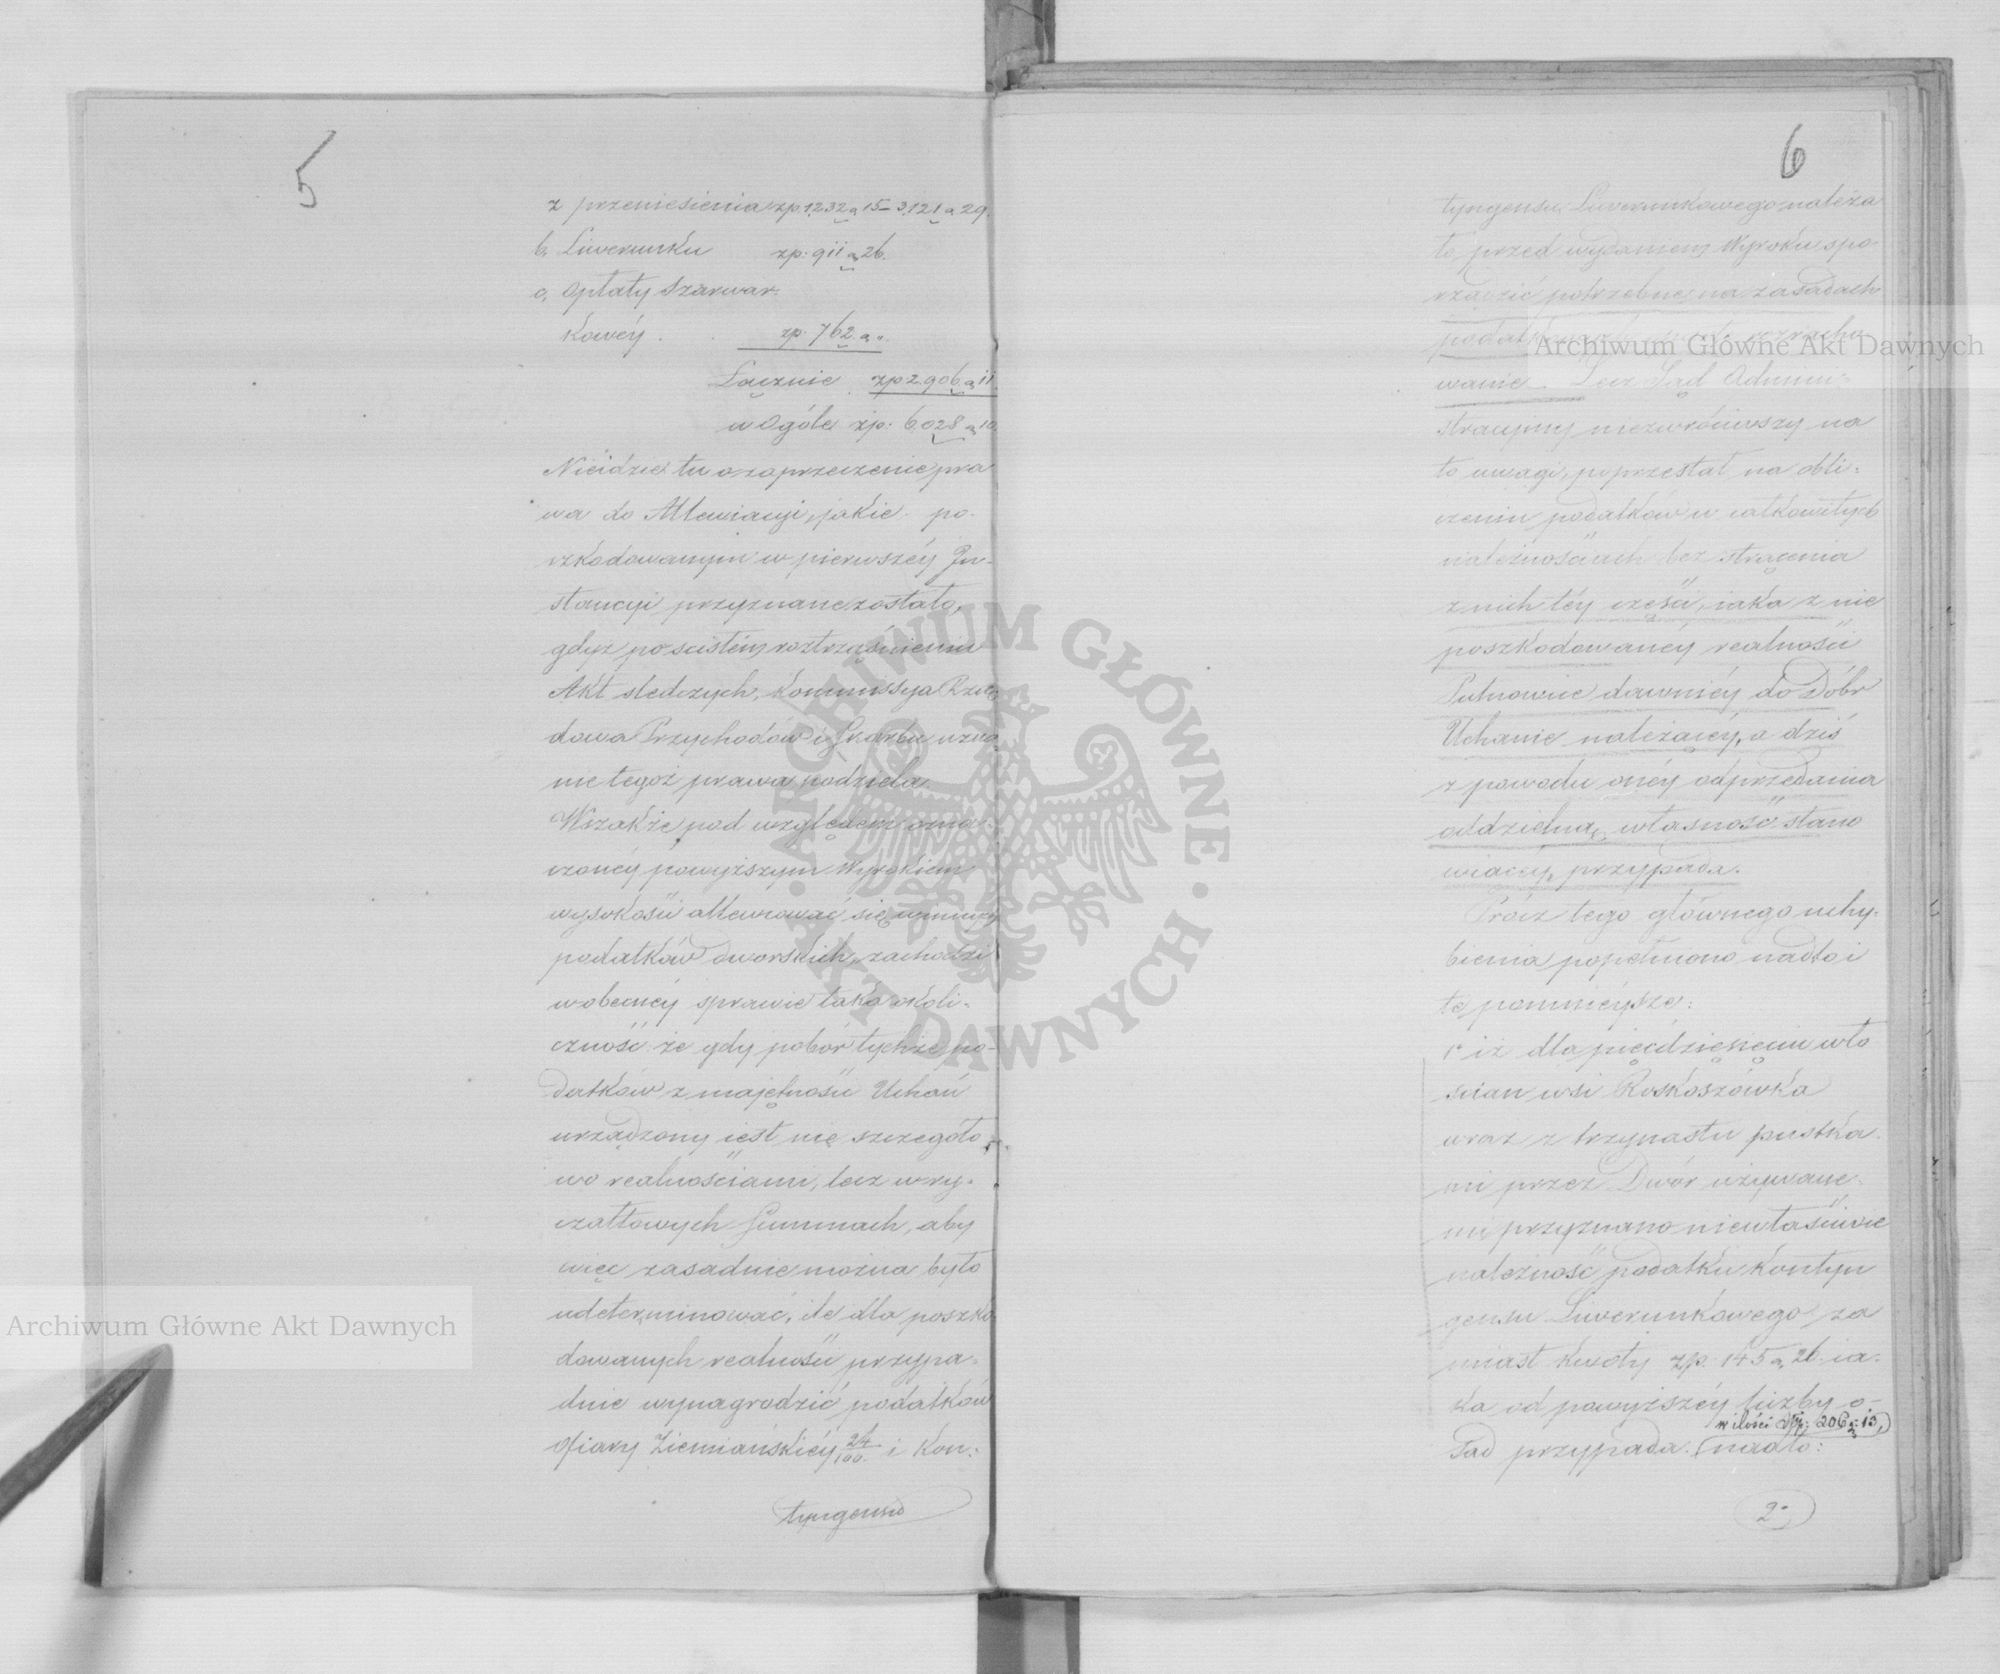 5
z przeniesienia zp. 1232 a 15 – 3,121 a 29.
b, Liwerunku zp. 911 a 26.
c, Opłaty Szarwar:
kowéy . . zp. 762 a „.
Łącznie zp 2.906 a 11.
w Ogóle zp. 6.028 a 10
Nieidzie tu o zaprzeczenie pra
wa do Allewiacyi, jakie po-
szkodowanym w pierwszéy In-
stancyi przyznane zostało,
gdyż po scisłém roztrząśnieniu
Akt sledczych, Kommissya Rzą
dowa Przychodów i Skarbu uzna
nie tegoż prawa podziela.
Wszakże pod względem ozna
czonéy powyższym Wyrokiem
wysokości allewiować się winnych
podatków dworskich, zachodzi
w obecnéy sprawie taka okoli-
czność że gdy pobór tychże po-
datków z majętności Uchań
urządzony iest nie szczegóło
wo realnościami, lecz w ry-
czałtowych Summach, aby
więc zasadnie można było
udeterminować, ile dla poszko
dowanych realności przypa-
dnie wynagrodzić podatków
Ofiary Ziemiańskiéy 24/100 i Kon:
tyngensu
6
tyngensu Liwerunkowego należa
ło przed wydaniem Wyroku spo-
rządzić potrzebne na zasadach
wanie. Lecz Sąd Admini-
stracyiny niezwróciwszy na
to uwagi, poprzestał na obli-
czeniu podatków w całkowitych
należnościach bez strącenia
z nich téy części, iaka z nie
poszkodowanéy realności
Putnowice dawniéy do Dóbr
Uchanie należącéy, a dziś
z powodu onéy odprzedania
oddzielną własność stano
wiącéy, przypada.
Prócz tego głównego uchy-
bienia popełniono nadto i
te pomnieysze:
1° iż dla pięćdziesięciu wło
scian wsi Roskoszówka
wraz z trzynastu pustka
mi przez Dwór używane-
mi przyznano niewłaściwie
należność podatku Kontyn
gensu Liwerunkowego za
miast kwoty zp. 145 a 26 ia-
ka od powyższéy liczby o-
w ilości Złp: 206 g: 13,
sad przypada. nadto:
2°
Archiwum Główne Akt Dawnych
Archiwum Główne Akt Dawnych
ARCHIWUM GŁÓWNE · AKT DAWNYCH ·